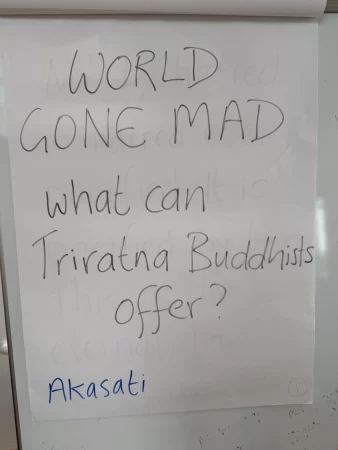 WORLD
GONE MAD
what can
Triratna Buddhists
offer?
Akasati